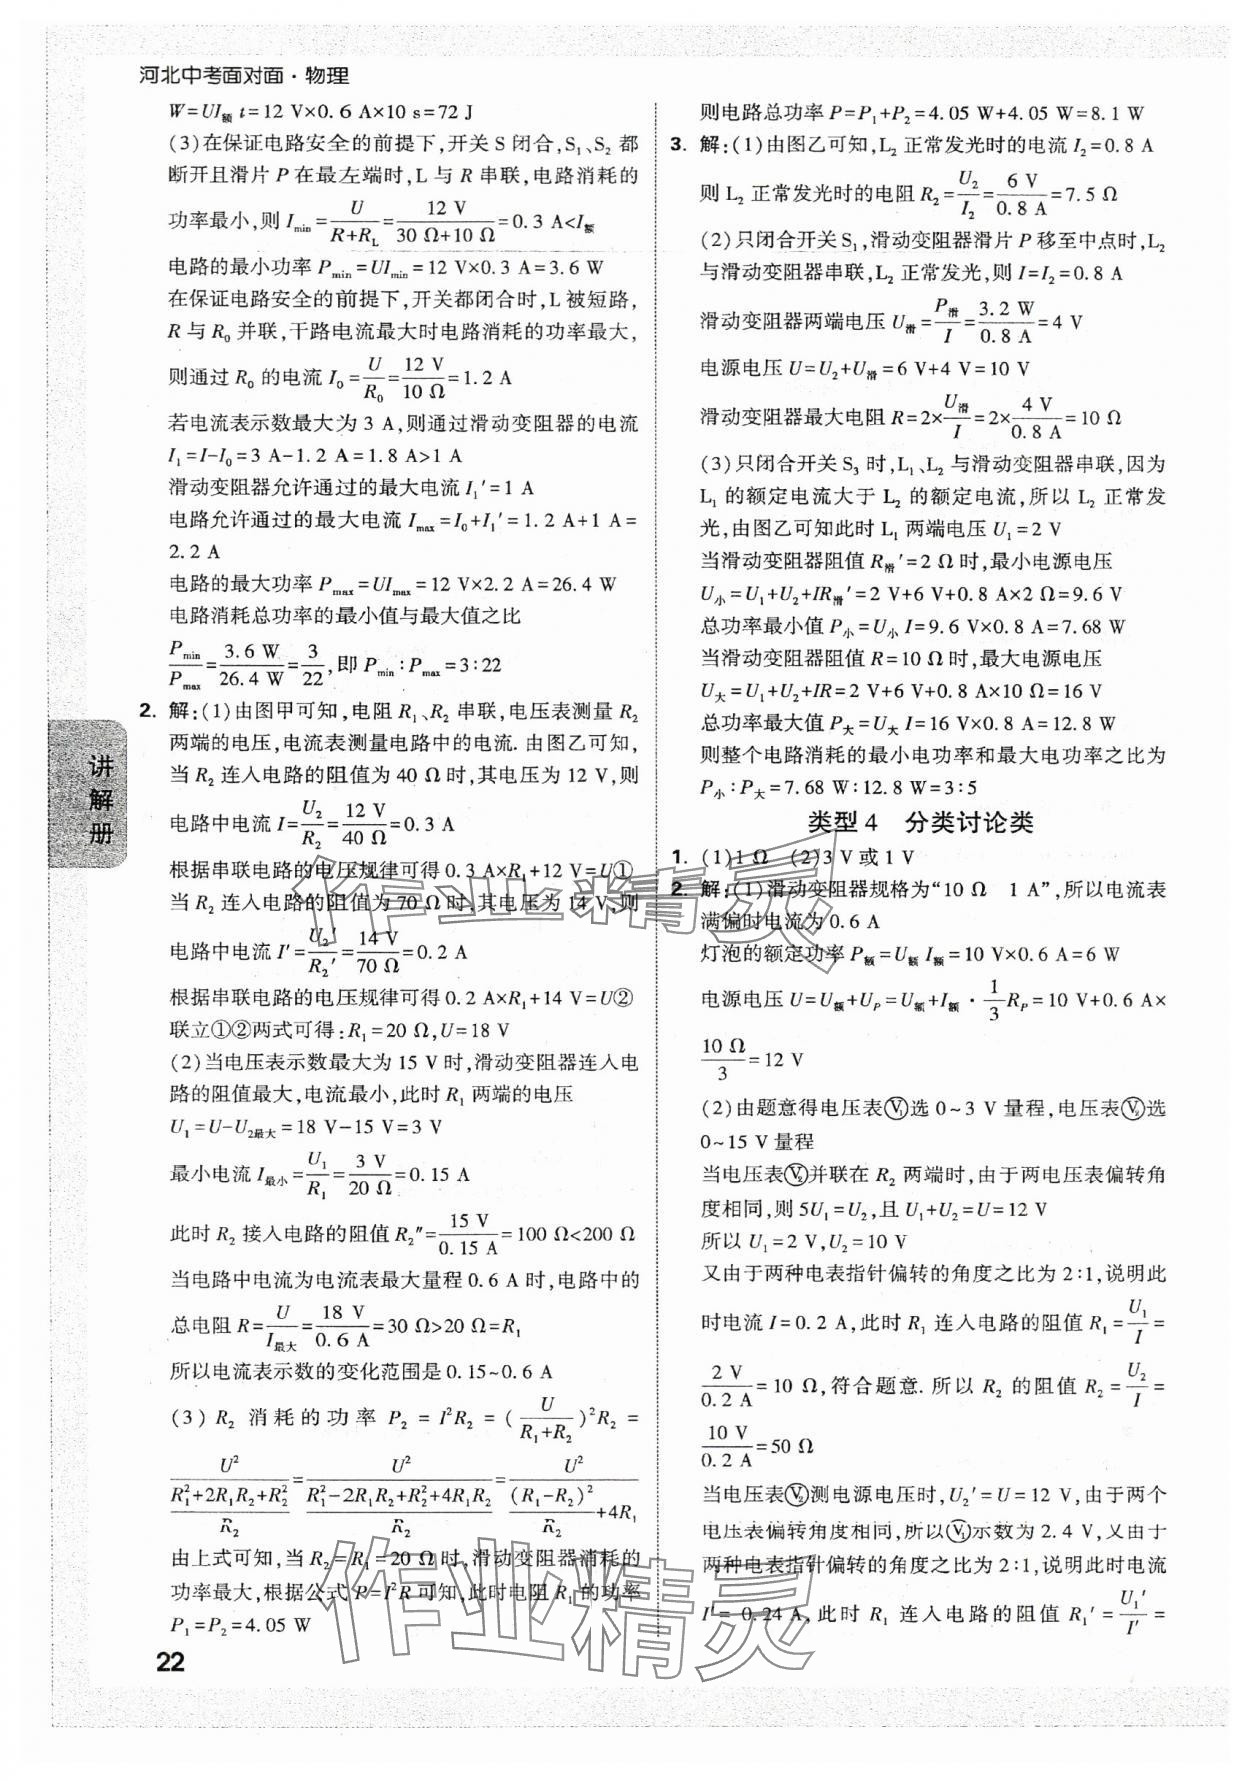 河北中考面对面·物理
W=UI额 t=12 V×0.6 A×10 s=72 J
(3)在保证电路安全的前提下,开关 S 闭合,S₁、S₂ 都
断开且滑片 P 在最左端时,L 与 R 串联,电路消耗的
功率最小,则 I_min=U/(R+R_L)=12 V/(30 Ω+10 Ω)=0.3 A<I额
电路的最小功率 P_min=UI_min=12 V×0.3 A=3.6 W
在保证电路安全的前提下,开关都闭合时,L 被短路,
R 与 R₀ 并联,干路电流最大时电路消耗的功率最大,
则通过 R₀ 的电流 I₀=U/R₀=12 V/10 Ω=1.2 A
若电流表示数最大为 3 A,则通过滑动变阻器的电流
I₁=I-I₀=3 A-1.2 A=1.8 A>1 A
滑动变阻器允许通过的最大电流 I₁′=1 A
电路允许通过的最大电流 I_max=I₀+I₁′=1.2 A+1 A=
2.2 A
电路的最大功率 P_max=UI_max=12 V×2.2 A=26.4 W
电路消耗总功率的最小值与最大值之比
P_min/P_max=3.6 W/26.4 W=3/22,即 P_min∶P_max=3∶22
2. 解:(1)由图甲可知,电阻 R₁、R₂ 串联,电压表测量 R₂
两端的电压,电流表测量电路中的电流. 由图乙可知,
当 R₂ 连入电路的阻值为 40 Ω 时,其电压为 12 V,则
电路中电流 I=U₂/R₂=12 V/40 Ω=0.3 A
根据串联电路的电压规律可得 0.3 A×R₁+12 V=U①
当 R₂ 连入电路的阻值为 70 Ω 时,其电压为 14 V,则
电路中电流 I′=U₂′/R₂′=14 V/70 Ω=0.2 A
根据串联电路的电压规律可得 0.2 A×R₁+14 V=U②
联立①②两式可得:R₁=20 Ω,U=18 V
(2)当电压表示数最大为 15 V 时,滑动变阻器连入电
路的阻值最大,电流最小,此时 R₁ 两端的电压
U₁=U-U₂最大=18 V-15 V=3 V
最小电流 I最小=U₁/R₁=3 V/20 Ω=0.15 A
此时 R₂ 接入电路的阻值 R₂″=15 V/0.15 A=100 Ω<200 Ω
当电路中电流为电流表最大量程 0.6 A 时,电路中的
总电阻 R=U/I最大=18 V/0.6 A=30 Ω>20 Ω=R₁
所以电流表示数的变化范围是 0.15~0.6 A
(3) R₂ 消耗的功率 P₂=I²R₂=(U/(R₁+R₂))²R₂=
U²/((R₁²+2R₁R₂+R₂²)/R₂)=U²/((R₁²-2R₁R₂+R₂²+4R₁R₂)/R₂)=U²/((R₁-R₂)²/R₂+4R₁)
由上式可知,当 R₂=R₁=20 Ω 时,滑动变阻器消耗的
功率最大,根据公式 P=I²R 可知,此时电阻 R₁ 的功率
P₁=P₂=4.05 W
22
则电路总功率 P=P₁+P₂=4.05 W+4.05 W=8.1 W
3. 解:(1)由图乙可知,L₂ 正常发光时的电流 I₂=0.8 A
则 L₂ 正常发光时的电阻 R₂=U₂/I₂=6 V/0.8 A=7.5 Ω
(2)只闭合开关 S₁,滑动变阻器滑片 P 移至中点时,L₂
与滑动变阻器串联,L₂ 正常发光,则 I=I₂=0.8 A
滑动变阻器两端电压 U滑=P滑/I=3.2 W/0.8 A=4 V
电源电压 U=U₂+U滑=6 V+4 V=10 V
滑动变阻器最大电阻 R=2×U滑/I=2×4 V/0.8 A=10 Ω
(3)只闭合开关 S₃ 时,L₁、L₂ 与滑动变阻器串联,因为
L₁ 的额定电流大于 L₂ 的额定电流,所以 L₂ 正常发
光,由图乙可知此时 L₁ 两端电压 U₁=2 V
当滑动变阻器阻值 R滑′=2 Ω 时,最小电源电压
U小=U₁+U₂+IR滑′=2 V+6 V+0.8 A×2 Ω=9.6 V
总功率最小值 P小=U小 I=9.6 V×0.8 A=7.68 W
当滑动变阻器阻值 R=10 Ω 时,最大电源电压
U大=U₁+U₂+IR=2 V+6 V+0.8 A×10 Ω=16 V
总功率最大值 P大=U大 I=16 V×0.8 A=12.8 W
则整个电路消耗的最小电功率和最大电功率之比为
P小∶P大=7.68 W∶12.8 W=3∶5
类型 4 分类讨论类
1. (1)1 Ω (2)3 V 或 1 V
2. 解:(1)滑动变阻器规格为“10 Ω 1 A”,所以电流表
满偏时电流为 0.6 A
灯泡的额定功率 P额=U额 I额=10 V×0.6 A=6 W
电源电压 U=U额+U_P=U额+I额·1/3 R_P=10 V+0.6 A×
10 Ω/3=12 V
(2)由题意得电压表V₁选 0~3 V 量程,电压表V₂选
0~15 V 量程
当电压表V₂并联在 R₂ 两端时,由于两电压表偏转角
度相同,则 5U₁=U₂,且 U₁+U₂=U=12 V
所以 U₁=2 V,U₂=10 V
又由于两种电表指针偏转的角度之比为 2∶1,说明此
时电流 I=0.2 A,此时 R₁ 连入电路的阻值 R₁=U₁/I=
2 V/0.2 A=10 Ω,符合题意. 所以 R₂ 的阻值 R₂=U₂/I=
10 V/0.2 A=50 Ω
当电压表V₂测电源电压时,U₂′=U=12 V,由于两个
电压表偏转角度相同,所以V₁示数为 2.4 V,又由于
两种电表指针偏转的角度之比为 2∶1,说明此时电流
I′=0.24 A,此时 R₁ 连入电路的阻值 R₁′=U₁′/I′=
讲解册
作业精灵
作业精灵